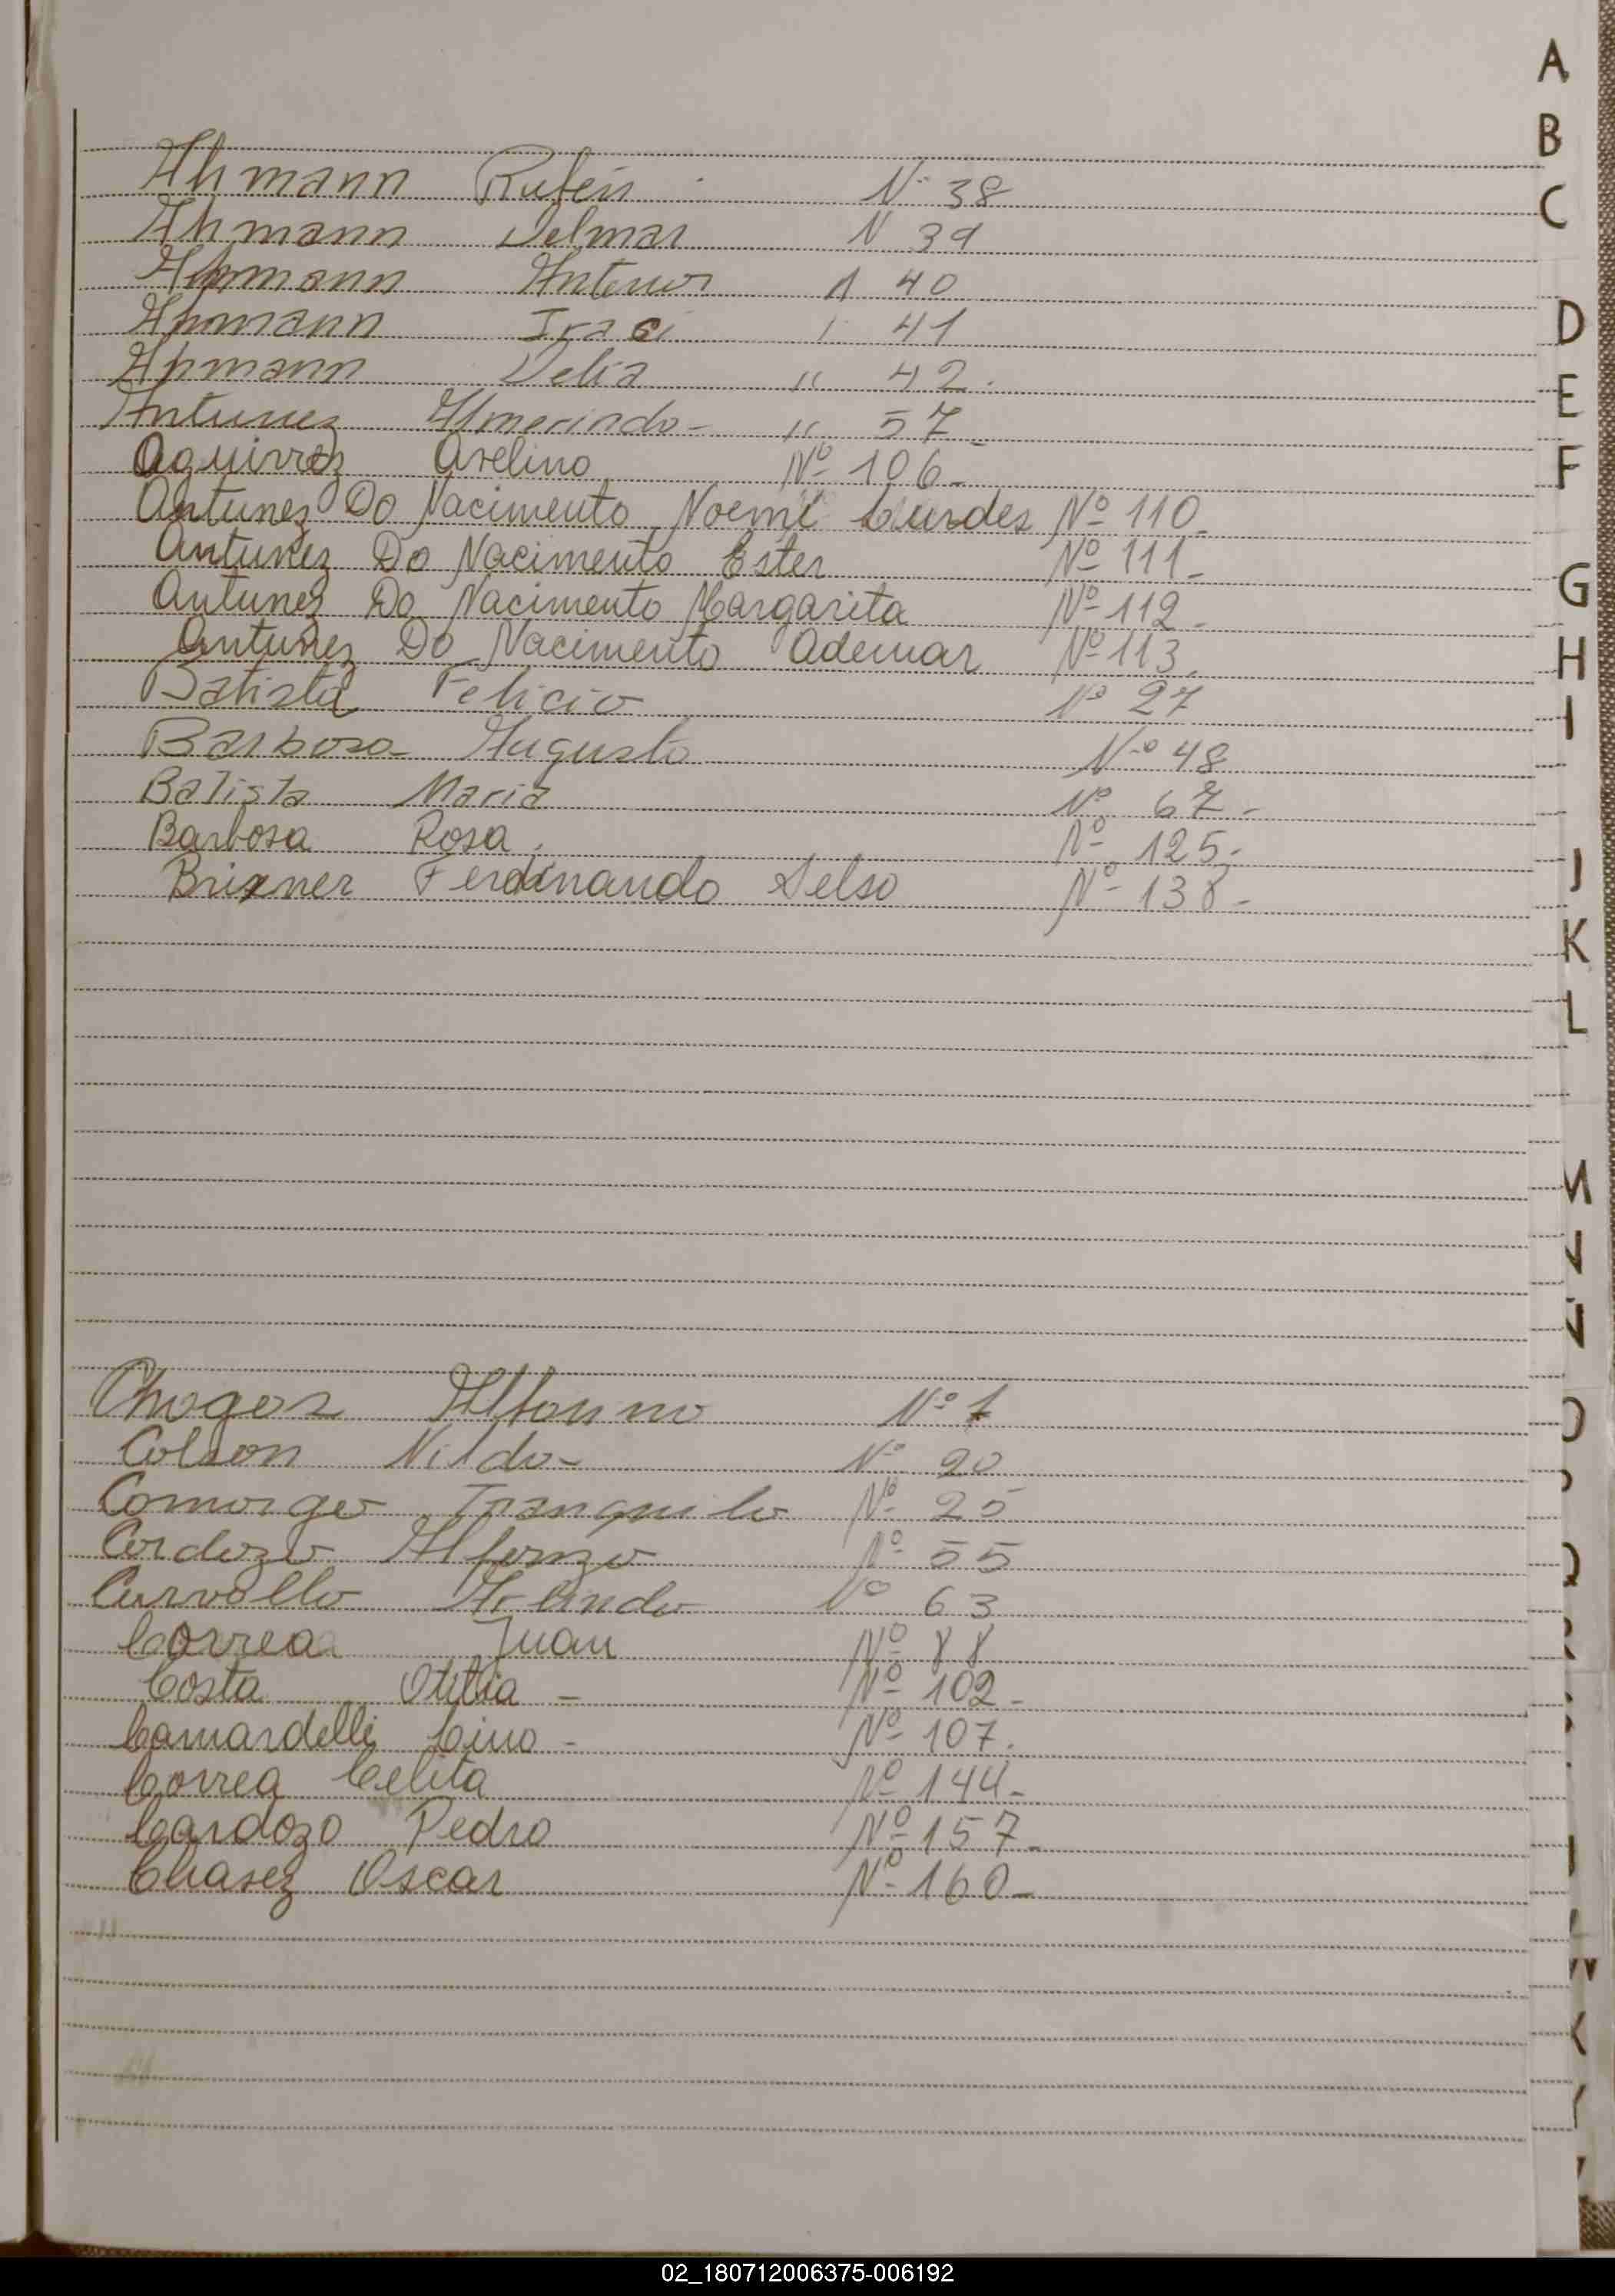 Ahmann Rubén N° 38
Ahmann Delmar N 39
Ahmann Antenor 40
Ahmann Iraci 41
Ahmann Delia " 42.
Antunez Almerindo - " 57 -
Aguirrez Avelino Nº 106 -
Antunez Do Nacimento Noemi Lurdes Nº 110 -
Antunez Do Nacimento Ester Nº 111 -
Antunez Do Nacimento Margarita Nº 112 -
Antunez Do Nacimento Ademar Nº 113.
Batista Felicio Nº 27
Barbosa - Augusto Nº 48
Batista Maria Nº 67 -
Barbosa Rosa. Nº 125 -
Brixner Ferdinando Selso Nº 138 -
Chagas Nº 1
Colson Nildo - Nº 20
Camargo Tranquilo Nº 25
Cardozo Alfonzo Nº 55
Carvallo Arlindo Nº 63
Correa Juan Nº 88
Costa Otilia - Nº 102 -
Camardelli Lino - Nº 107.
Correa Celita Nº 144 -
Cardozo Pedro Nº 157 -
Chavez Oscar Nº 160 -
A
B
C
D
E
F
G
H
I
J
K
L
M
N
Ñ
O
P
Q
R
S
02_180712006375-006192